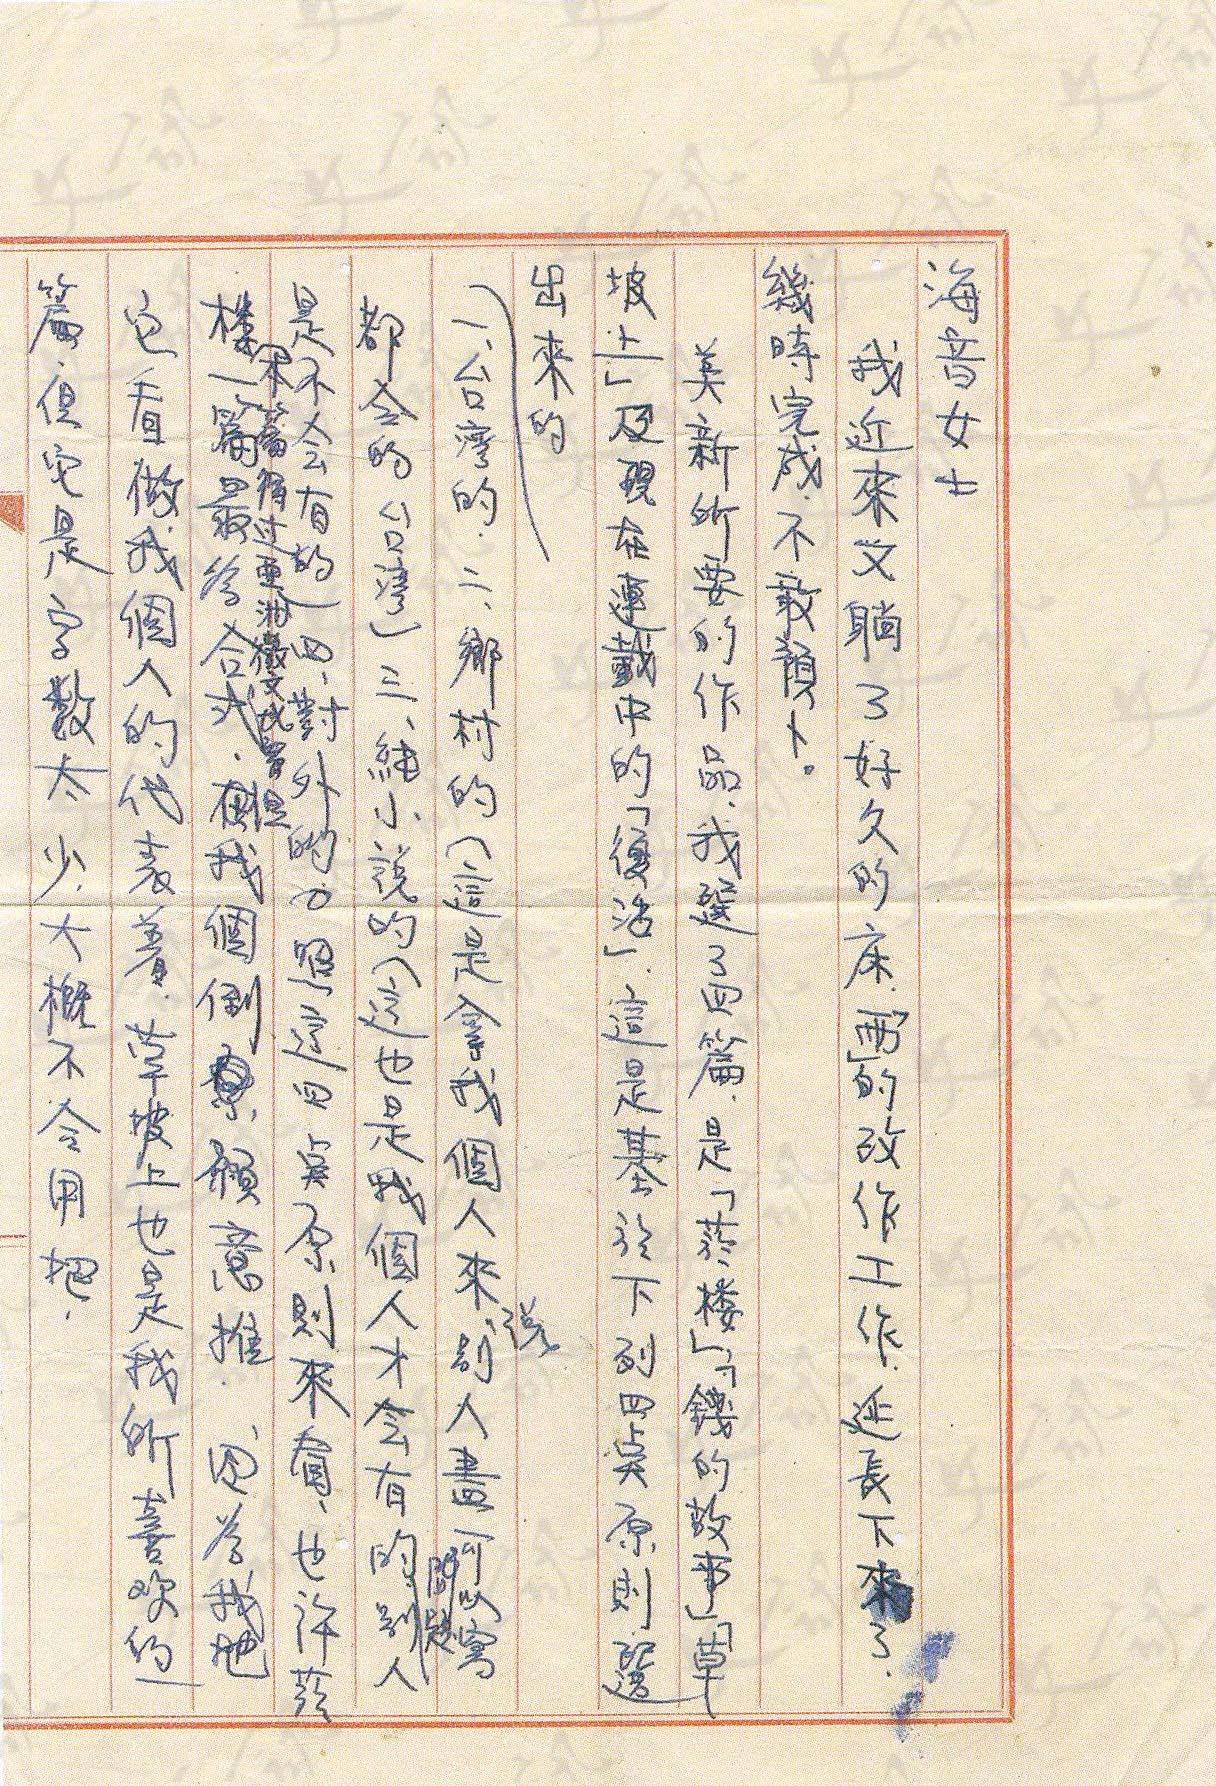 海音女士
我近來又躺了好久的床、「雨」的改作工作、延長下來了、
幾時完成、不敢預卜。
美新所要的作品、我選了四篇、是「菸樓」「錢的故事」「草
坡上」及現在連載中的「復活」、這是基於下列四點原則選
出來的
一、台灣的、二、鄉村的（這是拿我個人來說、別人盡可以寫
都会的台灣）三、純小說的（這也是我個人才会有的問題、別人
是不会有的）四、對外的 照這四點原則來看、也許菸
樓一篇最為合式、
本篇得过亞洲徵文 但
我個倒 願意推 因為我把
它看做我個人的代表着、草坡上也是我所喜欢的一
篇、但它是字數太少、大概不合用把、